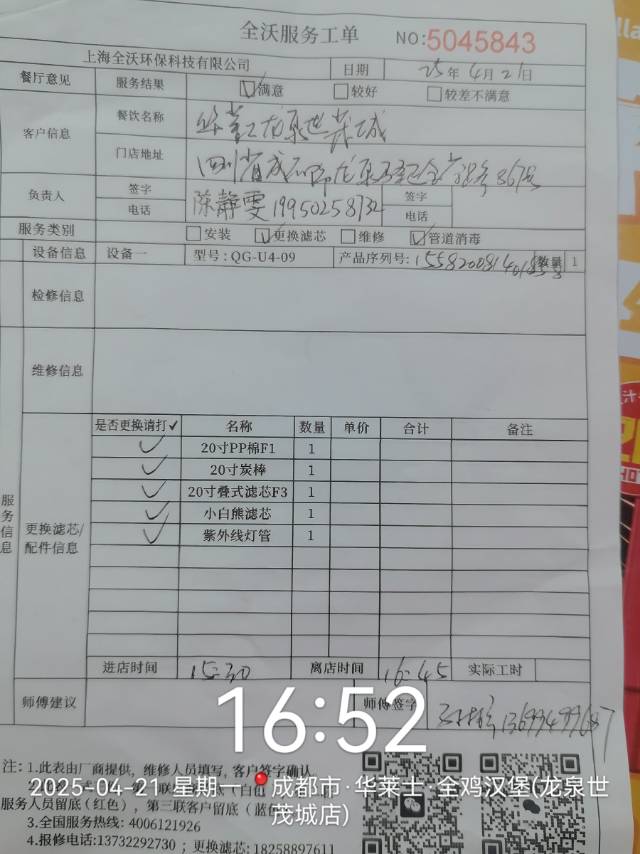 全沃服务工单
NO:5045843
上海全沃环保科技有限公司 日期 25年4月21日
餐厅意见 服务结果 ☑满意 □较好 □较差不满意
客户信息 餐饮名称 华莱士龙泉世茂城
门店地址 四川省成都 龙泉 867号
负责人 签字 陈静雯 签字
电话 19950258732 电话
服务类别 □安装 ☑更换滤芯 □维修 ☑管道消毒
设备信息 设备一 型号:QG-U4-09 产品序列号: 数量 1
检修信息
维修信息
服务信息
更换滤芯/配件信息
是否更换请打✓ 名称 数量 单价 合计 备注
✓ 20寸PP棉F1 1
✓ 20寸炭棒 1
✓ 20寸叠式滤芯F3 1
✓ 小白熊滤芯 1
✓ 紫外线灯管 1
进店时间 15:30 离店时间 16:45 实际工时
师傅建议 师傅签字
16:52
注:1.此表由厂商提供，维修人员填写，客户签字确认
2025-04-21 星期一 成都市·华莱士·全鸡汉堡(龙泉世茂城店)
服务人员留底(红色)，第三联客户留底(蓝
3.全国服务热线:4006121926
4.报修电话:13732292730 ；更换滤芯:18258897611